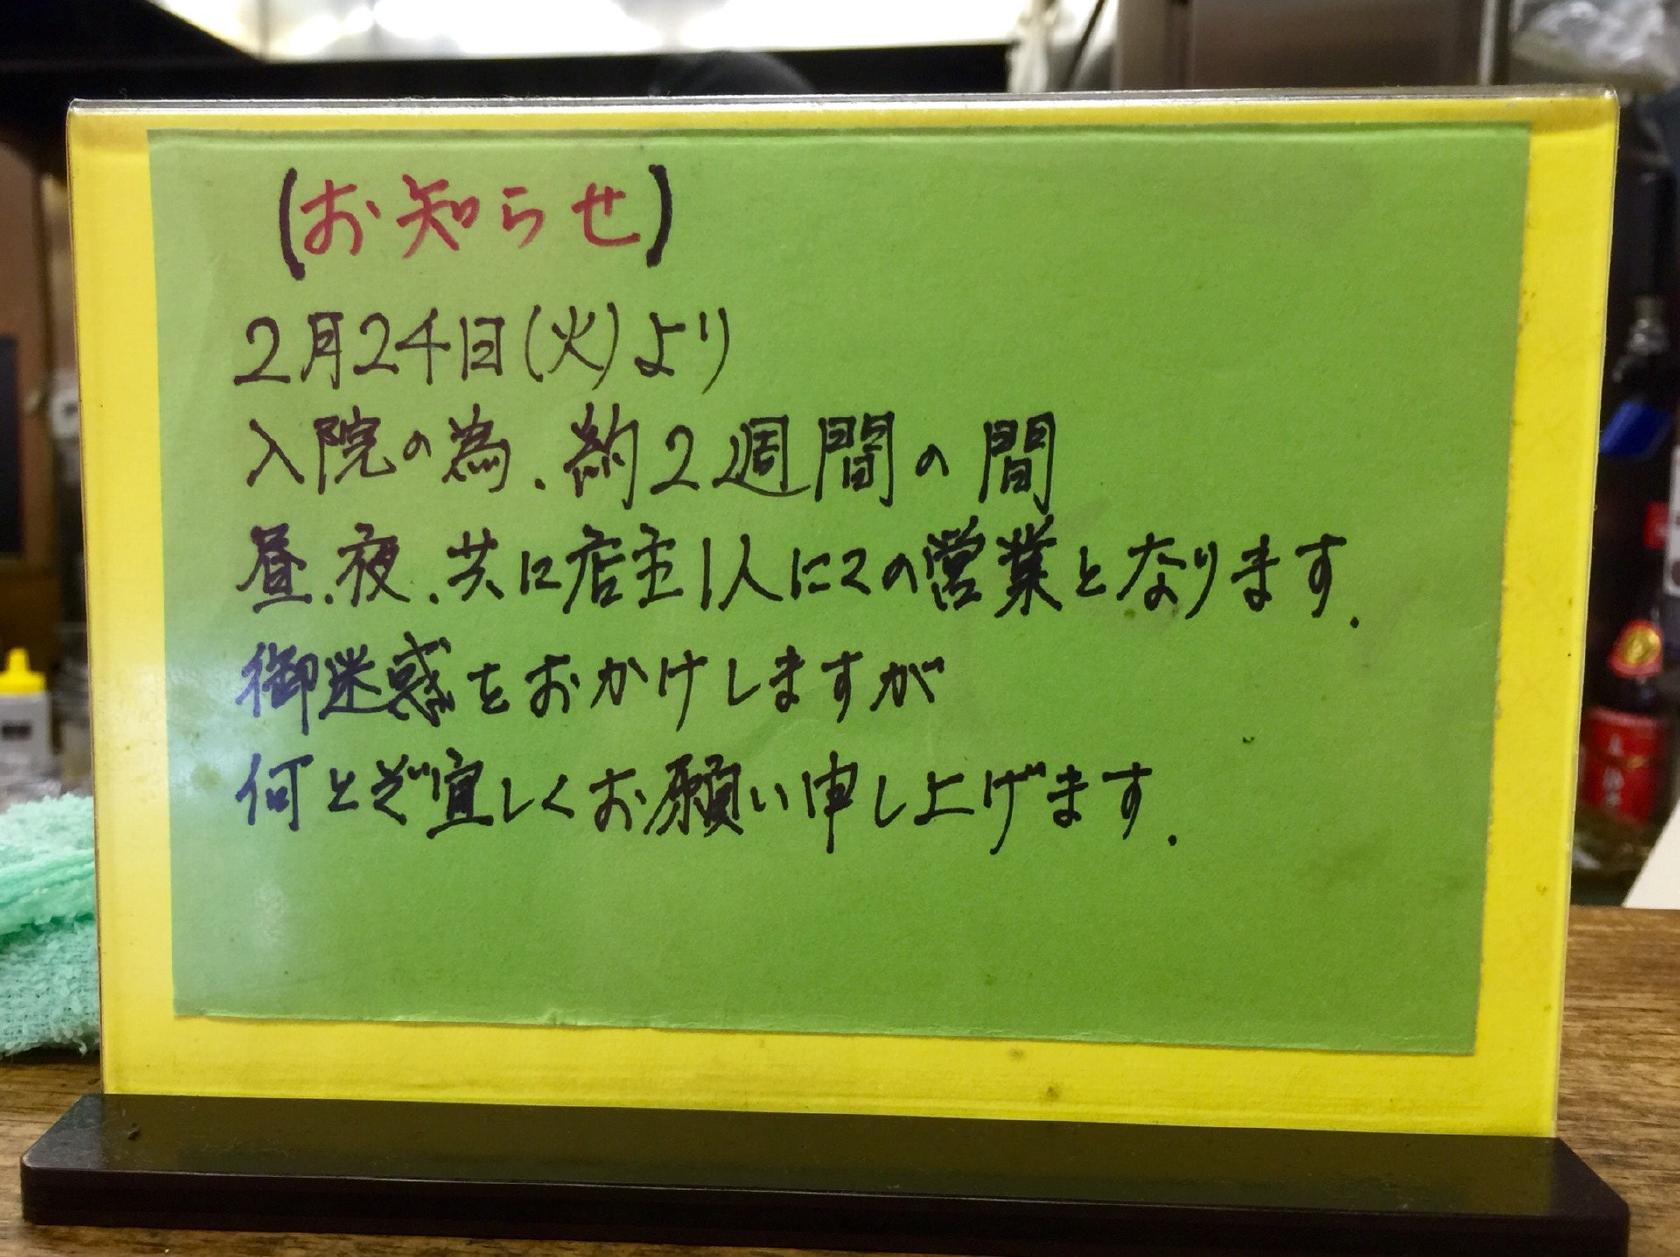 (お知らせ)
2月24日(火)より
入院の為、約2週間の間
昼、夜、共に店主1人にての営業となります。
御迷惑をおかけしますが
何とぞ宜しくお願い申し上げます。